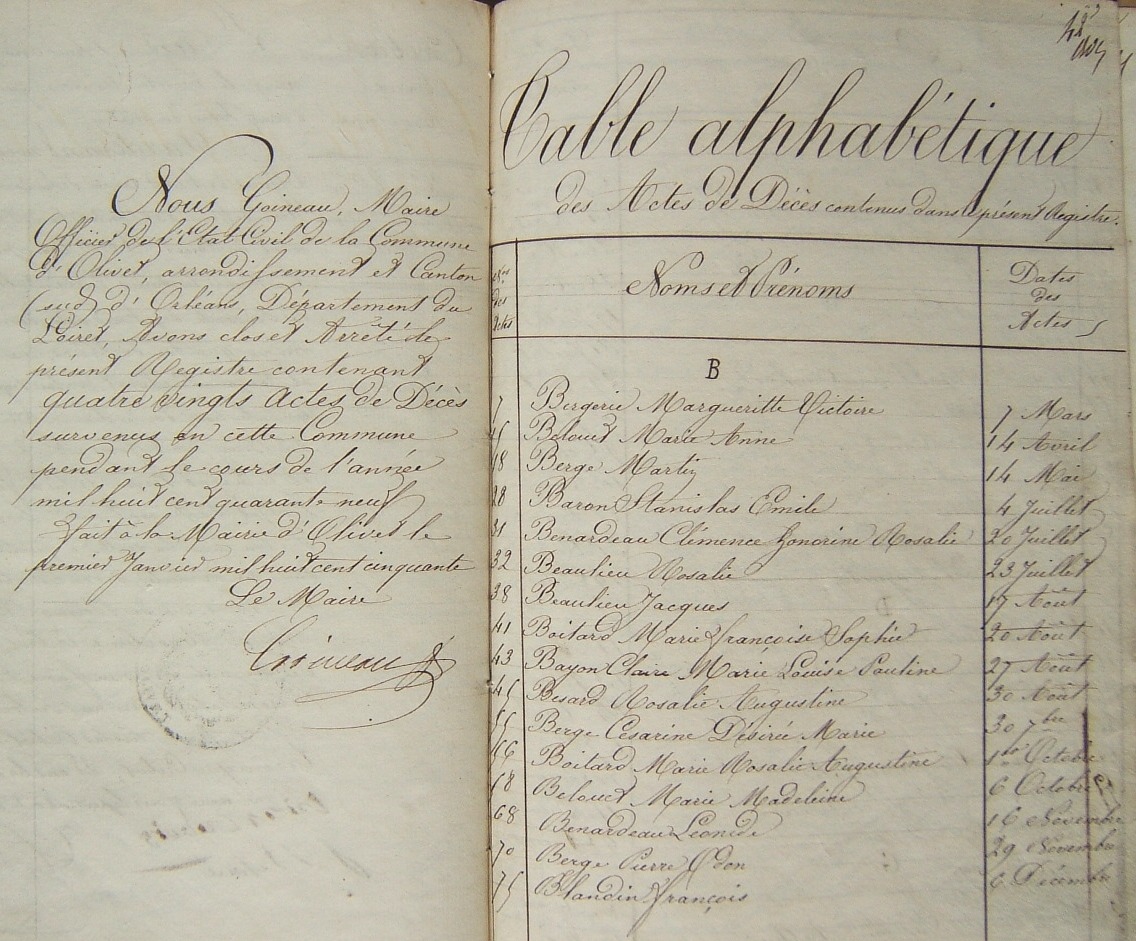 Nous Goineau, Maire
Officier de l'Etat Civil de la Commune
d'Olivet, arrondissement et Canton
(sud) d'Orléans, Département du
Loiret, Avons clos et Arrêté le
présent Registre contenant
quatre vingts Actes de Décès
survenus en cette Commune
pendant le cours de l'année
mil huit cent quarante neuf
fait à la Mairie d'Olivet le
premier Janvier mil huit cent cinquante
Le Maire
Goineau
Table alphabétique
des Actes de Décès contenus dans le présent Registre.
Nos des Actes
Noms et Prénoms
Dates des Actes
B
7 Bergerie Margueritte Victoire 7 Mars
Belouet Marie Anne 14 Avril
18 Berge Martin 14 Mai
28 Baron Stanislas Emile 4 Juillet
31 Benardeau Clémence honorine Rosalie 20 Juillet
32 Beaulieu Rosalie 23 Juillet
38 Beaulieu Jacques 17 Août
41 Boitard Marie françoise Sophie 20 Août
43 Bayon Claire Marie Louise Pauline 27 Août
45 Besard Rosalie Augustine 30 Août
55 Berge Cesarine Désirié Marie 30 7bre
Boitard Marie Rosalie Augustine 1er Octobre
Belouet Marie Madeleine 6 Octobre
68 Benardeau Léonide 16 Novembre
70 Berge Pierre Odon 29 Novembre
75 Blandin françois 6 Décembre